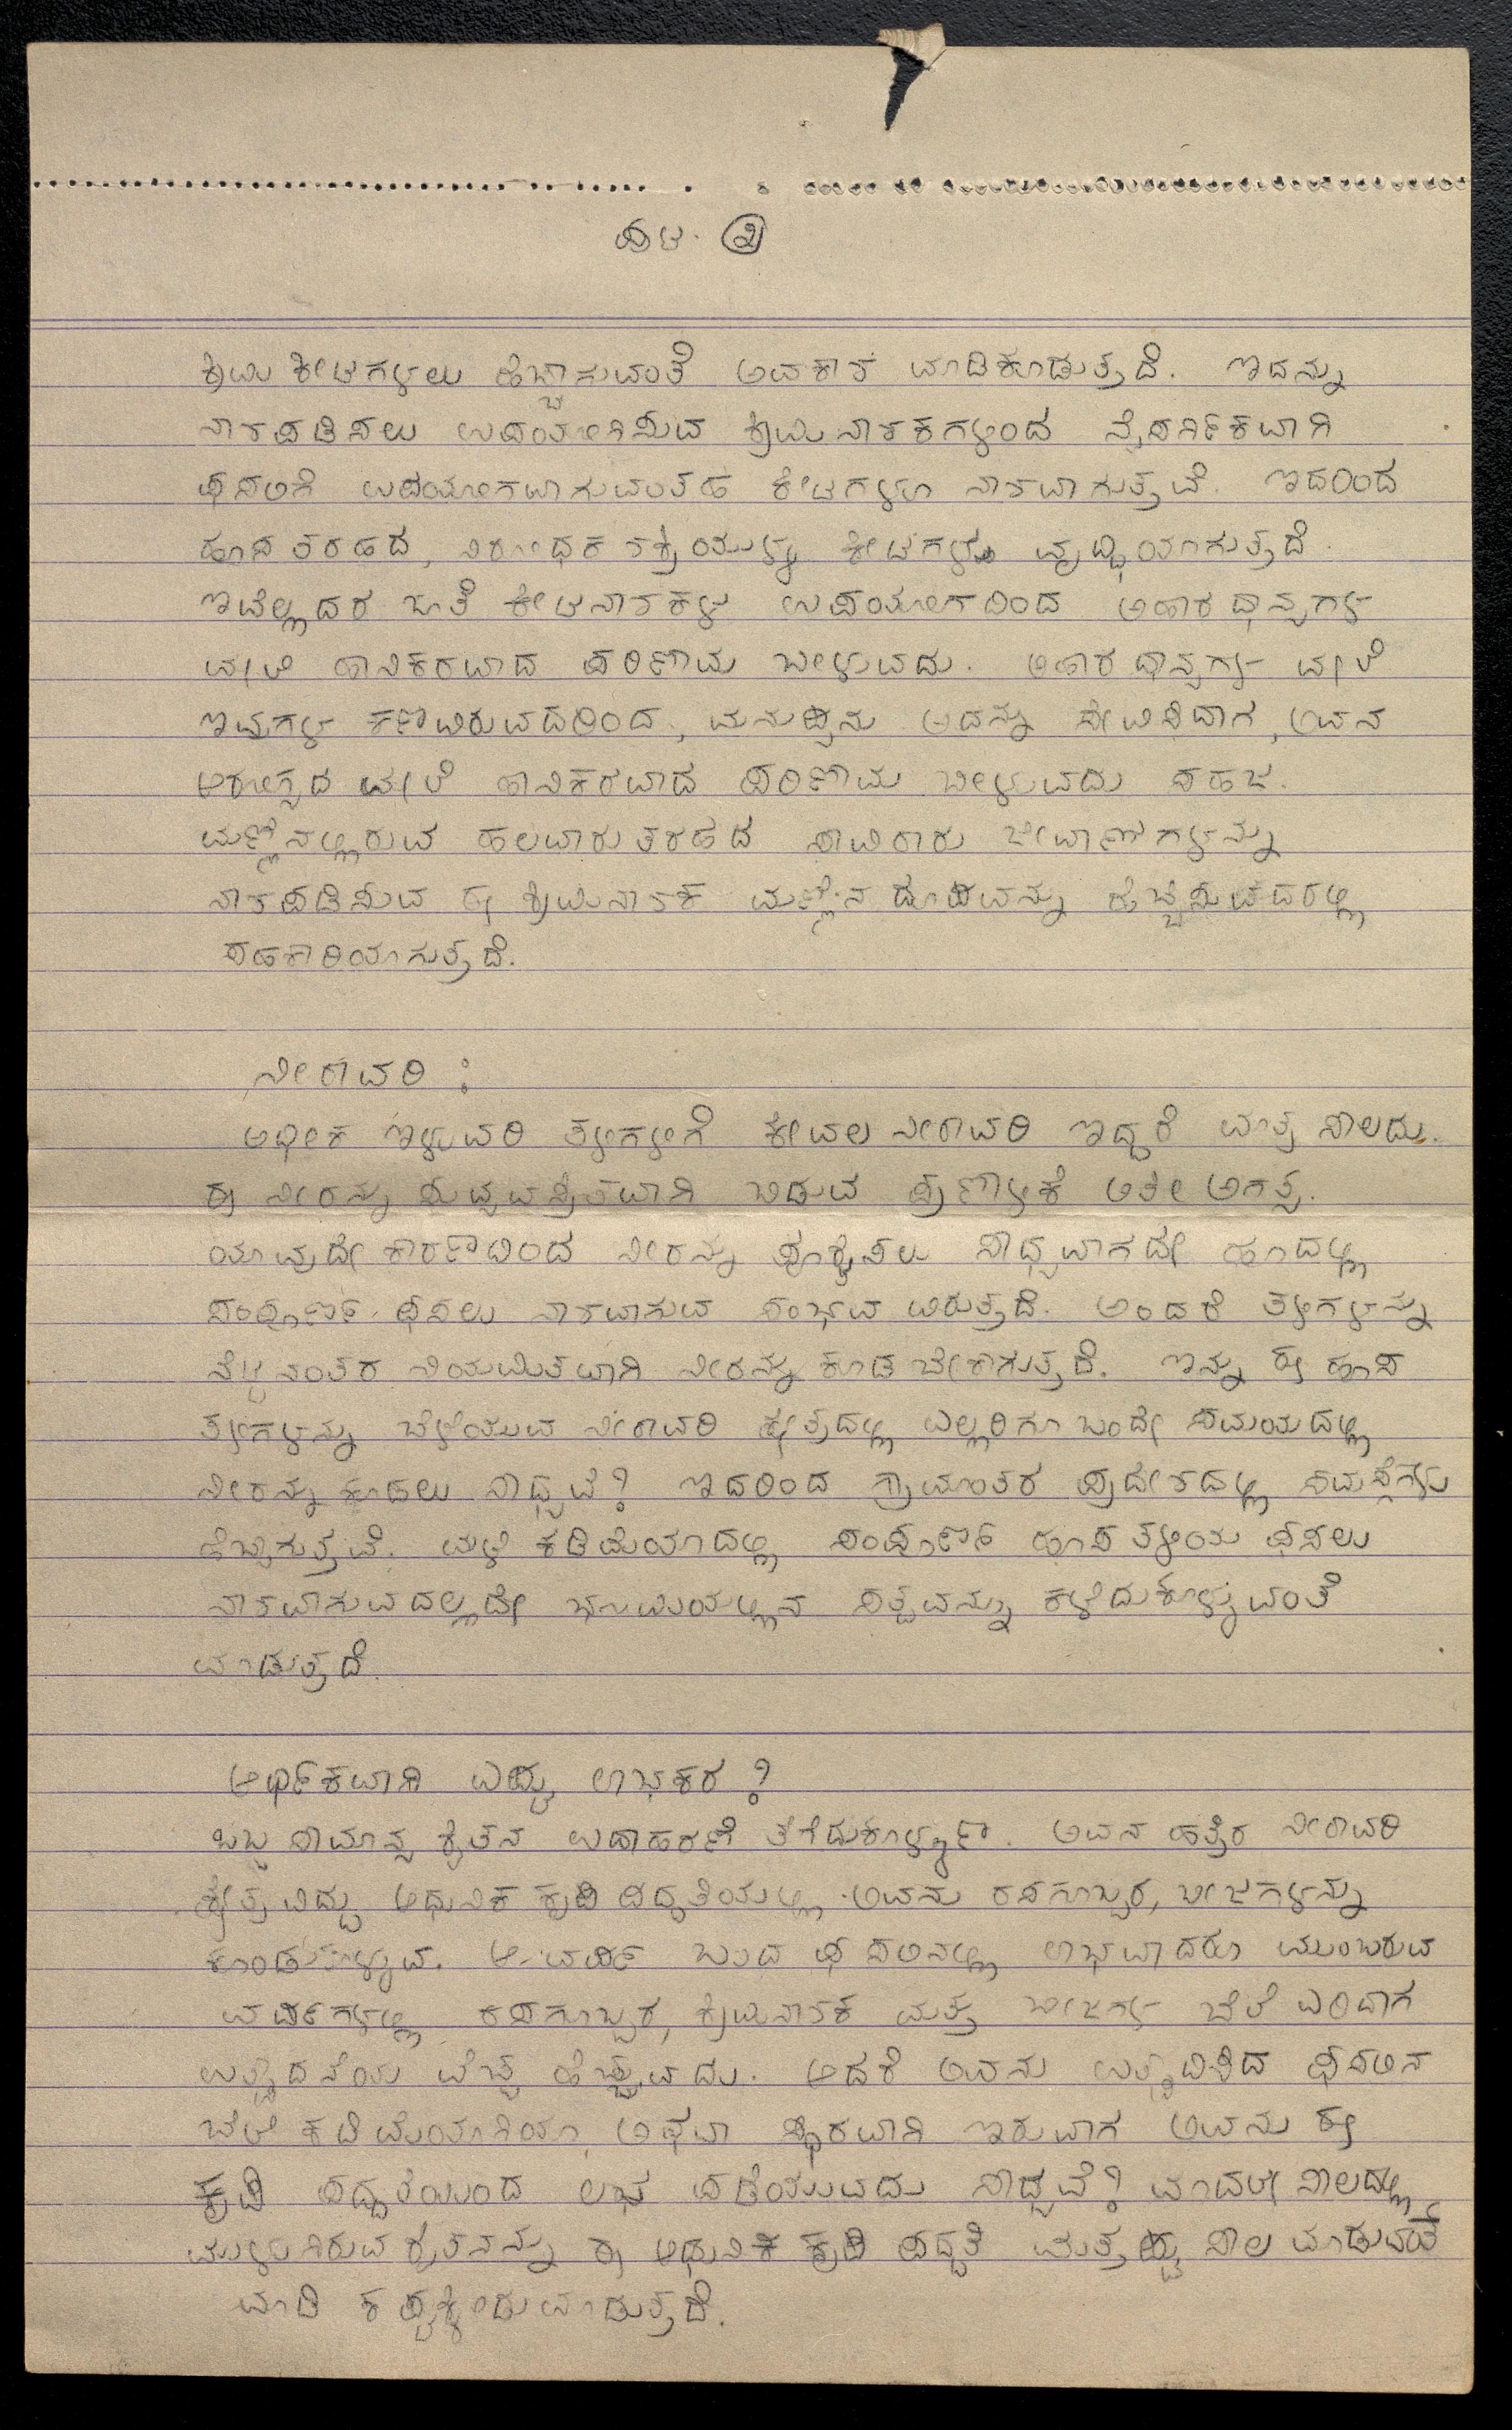 ಪುಟ. ೨
ಕ್ರಿಮಿ ಕೀಟಗಳಲು ಹೆಚ್ಚಾಗುವಂತೆ ಅವಕಾಶ ಮಾಡಿಕೊಡುತ್ತದೆ. ಇದನ್ನು
ನಾಶಪಡಿಸಲು ಉಪಯೋಗಿಸುವ ಕ್ರಿಮಿನಾಶಕಗಳಿಂದ ನೈಸರ್ಗಿಕವಾಗಿ
ಫಸಲಿಗೆ ಉಪಯೋಗವಾಗುವಂತಹ ಕೀಟಗಳೂ ನಾಶವಾಗುತ್ತವೆ. ಇದರಿಂದ
ಹೊಸ ತರಹದ, ನಿರೋಧಕ ಶಕ್ತಿಯುಳ್ಳ ಕೀಟಗಳು ವೃದ್ಧಿಯಾಗುತ್ತದೆ.
ಇವೆಲ್ಲದರ ಜೊತೆ ಕೀಟನಾಶಕಗಳ ಉಪಯೋಗದಿಂದ ಆಹಾರ ಧಾನ್ಯಗಳ
ಮೇಲೆ ಹಾನಿಕರವಾದ ಪರಿಣಾಮ ಬೀಳುವದು. ಆಹಾರ ಧಾನ್ಯಗಳ ಮೇಲೆ
ಇವುಗಳ ಕಣವಿರುವದರಿಂದ, ಮನುಷ್ಯನು ಅದನ್ನು ಸೇವಿಸಿದಾಗ, ಅವನ
ಆರೋಗ್ಯದ ಮೇಲೆ ಹಾನಿಕರವಾದ ಪರಿಣಾಮ ಬೀಳುವದು ಸಹಜ.
ಮಣ್ಣಿನಲ್ಲಿರುವ ಹಲವಾರು ತರಹದ ಸಾವಿರಾರು ಜೀವಾಣುಗಳನ್ನು
ನಾಶಪಡಿಸುವ ಈ ಕ್ರಿಮಿನಾಶಕ ಮಣ್ಣಿನ ದೋಷವನ್ನು ಹೆಚ್ಚಿಸುವದರಲ್ಲಿ
ಸಹಕಾರಿಯಾಗುತ್ತದೆ.
ನೀರಾವರಿ :
ಅಧೀಕ ಇಳುವರಿ ತಳಿಗಳಿಗೆ ಕೇವಲ ನೀರಾವರಿ ಇದ್ದರೆ ಮಾತ್ರ ಸಾಲದು.
ಈ ನೀರನ್ನು ಸುವ್ಯವಸ್ಥಿತವಾಗಿ ಬಿಡುವ ಪ್ರಣಾಳಿಕೆ ಅತೀ ಅಗತ್ಯ.
ಯಾವುದೇ ಕಾರಣದಿಂದ ನೀರನ್ನು ಪೂರೈಸಲು ಸಾಧ್ಯವಾಗದೇ ಹೋದಲ್ಲಿ
ಸಂಪೂರ್ಣ ಫಸಲು ನಾಶವಾಗುವ ಸಂಭವ ವಿರುತ್ತದೆ. ಅಂದರೆ ತಳಿಗಳನ್ನು
ನೆಟ್ಟ ನಂತರ ನಿಯಮಿತವಾಗಿ ನೀರನ್ನು ಕೊಡ ಬೇಕಾಗುತ್ತದೆ. ಇನ್ನು ಈ ಹೊಸ
ತಳಿಗಳನ್ನು ಬೆಳೆಯುವ ನೀರಾವರಿ ಕ್ಷೇತ್ರದಲ್ಲಿ ಎಲ್ಲರಿಗೂ ಒಂದೇ ಸಮಯದಲ್ಲಿ
ನೀರನ್ನು ಕೊಡಲು ಸಾಧ್ಯವೆ? ಇದರಿಂದ ಗ್ರಾಮಾಂತರ ಪ್ರದೇಶದಲ್ಲಿ ಸಮಸ್ಯೆಗಳು
ಹೆಚ್ಚಾಗುತ್ತವೆ. ಮಳೆ ಕಡಿಮೆಯಾದಲ್ಲಿ ಸಂಪೂರ್ಣ ಹೊಸ ತಳಿಯ ಫಸಲು
ನಾಶವಾಗುವದಲ್ಲದೇ ಭೂಮಿಯಲ್ಲಿನ ಸತ್ವವನ್ನು ಕಳೆದುಕೊಳ್ಳುವಂತೆ
ಮಾಡುತ್ತದೆ.
ಆರ್ಥಿಕವಾಗಿ ಎಷ್ಟು ಲಾಭಕರ ?
ಒಬ್ಬ ಸಾಮಾನ್ಯ ರೈತನ ಉದಾಹರಣೆ ತೆಗೆದುಕೊಳ್ಳೋಣ. ಅವನ ಹತ್ತಿರ ನೀರಾವರಿ
ಕ್ಷೇತ್ರವಿದ್ದು ಆಧುನಿಕ ಕೃಷಿ ಪದ್ಧತಿಯಲ್ಲಿ ಅವನು ರಸಗೊಬ್ಬರ, ಬೀಜಗಳನ್ನು
ಕೊಂಡುಕೊಳ್ಳುವ. ಆ ವರ್ಷ ಬಂದ ಫಸಲಿನಲ್ಲಿ ಲಾಭವಾದರೂ ಮುಂಬರುವ
ವರ್ಷಗಳಲ್ಲಿ ರಸಗೊಬ್ಬರ, ಕ್ರಿಮಿನಾಶಕ ಮತ್ತು ಬೀಜಗಳ ಬೆಲೆ ಏರಿದಾಗ
ಉತ್ಪಾದನೆಯ ವೆಚ್ಚ ಹೆಚ್ಚುವದು. ಆದರೆ ಅವನು ಉತ್ಪಾದಿಸಿದ ಫಸಲಿನ
ಬೆಲೆ ಕಡಿಮೆಯಾಗಿಯೂ ಅಥವಾ ಸ್ಥಿರವಾಗಿ ಇರುವಾಗ ಅವನು ಈ
ಕೃಷಿ ಪದ್ಧತಿಯಿಂದ ಲಾಭ ಪಡೆಯುವದು ಸಾಧ್ಯವೆ? ಮೊದಲೇ ಸಾಲದಲ್ಲಿ
ಮುಳುಗಿರುವ ರೈತನನ್ನು ಈ ಆಧುನಿಕ ಕೃಷಿ ಪದ್ಧತಿ ಮತ್ತಷ್ಟು ಸಾಲ ಮಾಡುವಂತೆ
ಮಾಡಿ ಕಷ್ಟಕ್ಕೀಡುಮಾಡುತ್ತದೆ.